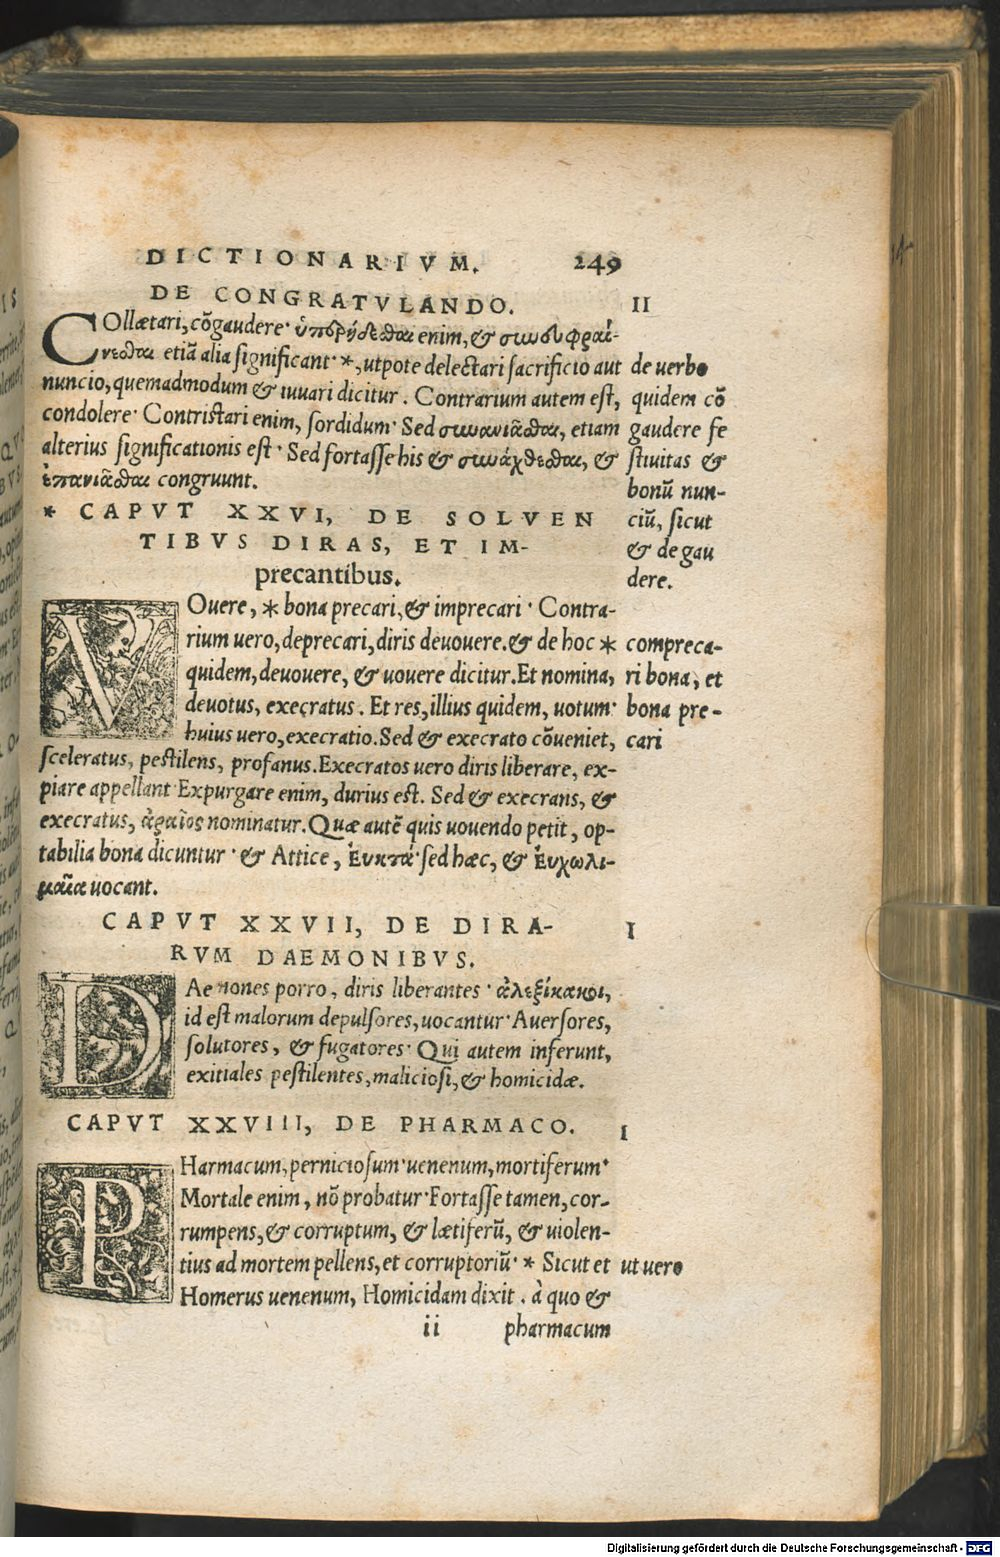 DICTIONARIVM. 249
DE CONGRATVLANDO. II
COllætari, cōgaudere· ὑπερήδεσθαι enim, & συνευφραί-
νεσθαι etiā alia significant· *, utpote delectari sacrificio aut
nuncio, quemadmodum & iuuari dicitur. Contrarium autem est,
condolere· Contristari enim, sordidum· Sed συνανιᾶσθαι, etiam
alterius significationis est· Sed fortasse his & συνάχθεσθαι, &
ἐπανιᾶσθαι congruunt.
de uerbo
quidem cō
gaudere fe
stiuitas &
bonū nun-
ciū, sicut
& de gau
dere.
* CAPVT XXVI, DE SOLVEN
TIBVS DIRAS, ET IM-
precantibus.
VOuere, * bona precari, & imprecari· Contra-
rium uero, deprecari, diris deuouere. & de hoc *
quidem, deuouere, & uouere dicitur. Et nomina,
deuotus, execratus. Et res, illius quidem, uotum·
huius uero, execratio. Sed & execrato cōueniet,
sceleratus, pestilens, profanus. Execratos uero diris liberare, ex-
piare appellant· Expurgare enim, durius est. Sed & execrans, &
execratus, ἀραῖος nominatur. Quæ autē quis uouendo petit, op-
tabilia bona dicuntur· & Attice, Ευκτά· sed hæc, & Ευχωλι-
μαῖα uocant.
compreca-
ri bona, et
bona pre-
cari
CAPVT XXVII, DE DIRA- I
RVM DAEMONIBVS.
DAemones porro, diris liberantes· ἀλεξίκακοι,
id est malorum depulsores, uocantur· Auersores,
solutores, & fugatores· Qui autem inferunt,
exitiales pestilentes, maliciosi, & homicidæ.
CAPVT XXVIII, DE PHARMACO. I
PHarmacum, perniciosum· uenenum, mortiferum·
Mortale enim, nō probatur· Fortasse tamen, cor-
rumpens, & corruptum, & lætiferū, & uiolen-
tius ad mortem pellens, et corruptoriū· * Sicut et ut uero
Homerus uenenum, Homicidam dixit. à quo &
ii pharmacum
Digitalisierung gefördert durch die Deutsche Forschungsgemeinschaft - DFG